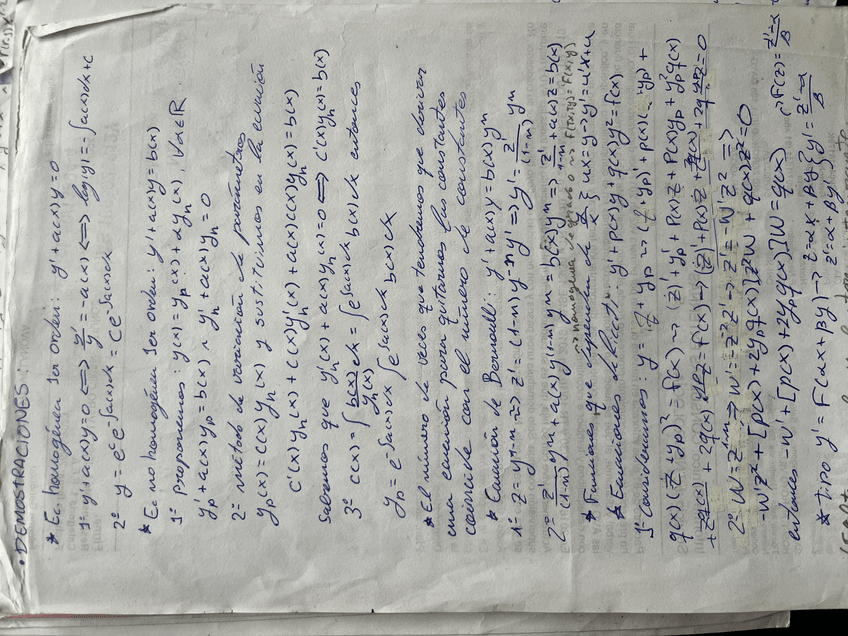 • DEMOSTRACIONES:
* Ec. homogénea 1er orden: y' + a(x)y = 0
1º y' + a(x)y = 0 <=> y'/y = -a(x) <=> log|y| = -∫a(x)dx + c
2º y = e^c e^{-∫a(x)dx} = Ce^{-∫a(x)dx}
* Ec no homogénea 1er orden: y' + a(x)y = b(x)
1º proponemos: y(x) = y_p(x) + αy_h(x), ∀α∈ℝ.
y_p' + a(x)y_p = b(x) ∧ y_h' + a(x)y_h = 0
2º método de variación de parámetros
y_p(x) = c(x)y_h(x) y sustituimos en la ecuación
c'(x)y_h(x) + c(x)y_h'(x) + a(x)c(x)y_h(x) = b(x)
Sabemos que y_h'(x) + a(x)y_h(x) = 0 <=> c'(x)y_h(x) = b(x)
3º c(x) = ∫ b(x)/y_h(x) dx = ∫e^{∫a(x)dx} b(x)dx entonces
y_p = e^{-∫a(x)dx} ∫e^{∫a(x)dx} b(x)dx
* El número de veces que tendremos que derivar
una ecuación para quitarnos las constantes
coincide con el número de constantes
* Ecuación de Bernoulli: y' + a(x)y = b(x)y^m
1º z = y^{1-m} => z' = (1-m)y^{-m}y' => y' = z'/(1-m) y^m
2º z'/(1-m) y^m + a(x)y^{(1-m)}y^m = b(x)y^m => z'/(1-m) + a(x)z = b(x)
-> homogénea de grado 0 => F(Tx,Ty) = F(x,y)
* Funciones que dependen de y/x } ux = y -> y' = u'x + u
* Ecuaciones de Riccati: y' + p(x)y + q(x)y² = f(x)
1º Consideramos: y = z + y_p => (z + y_p)' + p(x)(z + y_p) +
q(x)(z + y_p)² = f(x) => (z)' + y_p' + p(x)z + p(x)y_p + y_p²q(x)
2º W = z^{-1} => W' = -z^{-2}z' -> z' = -W'z² =>
-W'z² + [p(x) + 2y_p q(x)]z²W + q(x)z² = 0
entonces -W' + [p(x) + 2y_p q(x)]W = q(x)
* tipo y' = F(αx + βy) -> z = αx + βy } y' = z'-α/β
z' = α + βy'